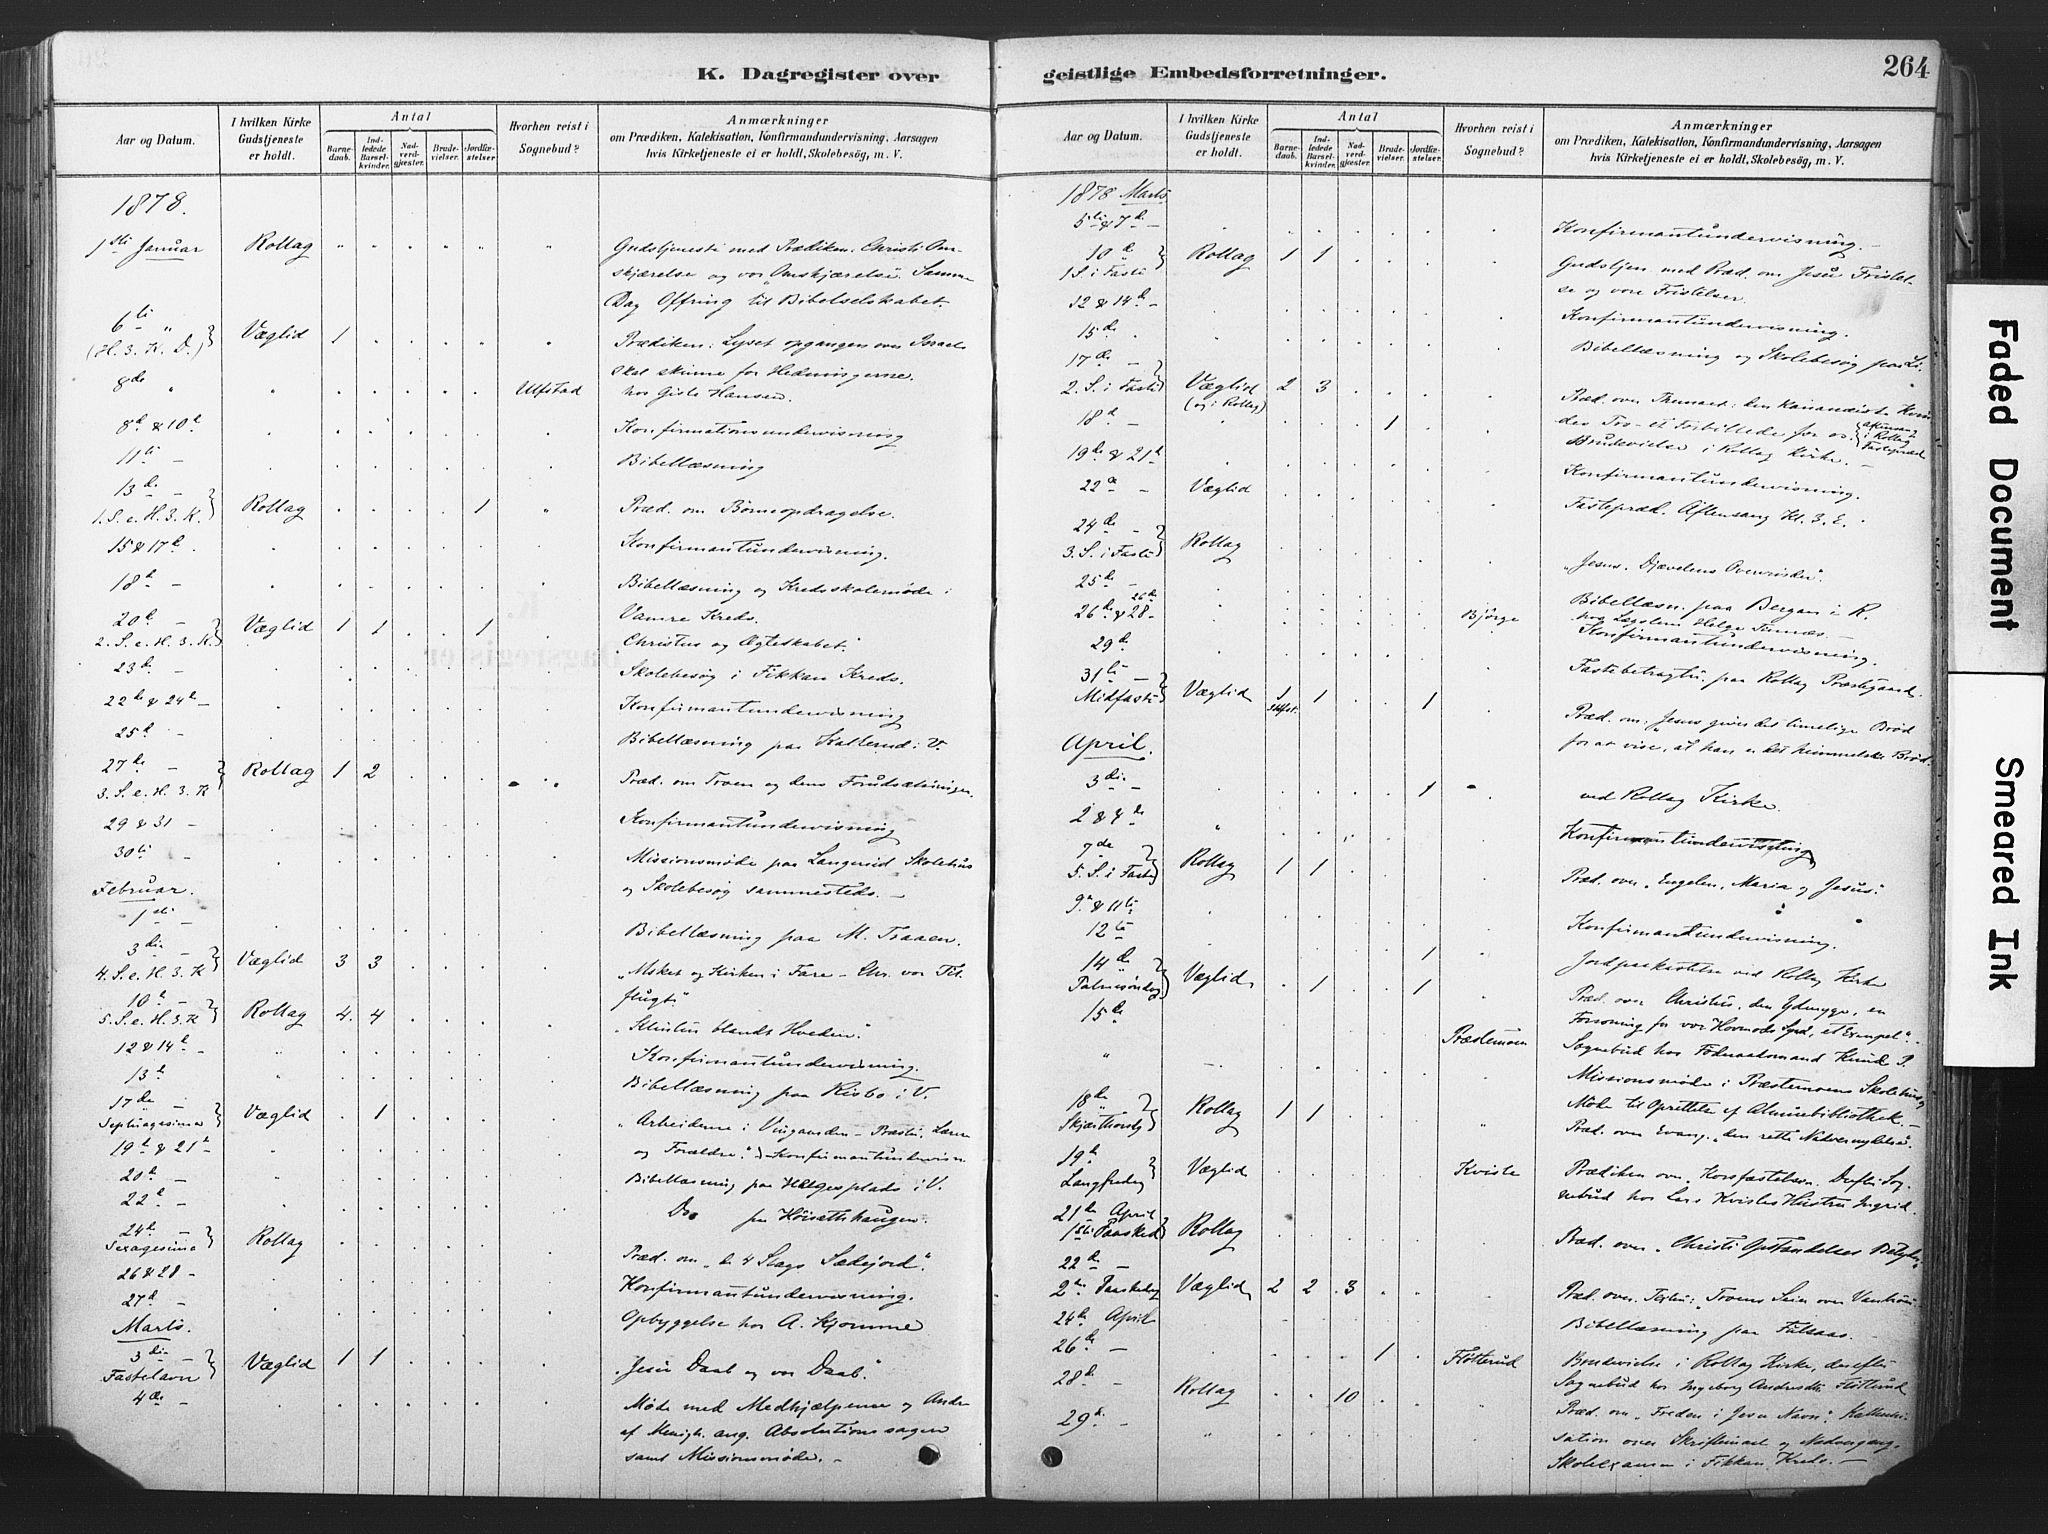 K. Dagregister over
geistlige Embedsforretninger.
264
Aar og Datum.
I hvilken Kirke Gudstjeneste er holdt.
Antal
Barnedaab.
Indledede Barselkvinder.
Nadverdgjester.
Brudevielser.
Jordfæstelser
Hvorhen reist i Sognebud?
Anmærkninger
om Prædiken, Katekisation, Konfirmandundervisning, Aarsagen
hvis Kirketjeneste ei er holdt, Skolebesög, m. V.
1878.
1ste Januar Rollag " " " " " " Gudstjeneste med Prædiken. Christi Om-
skjærelse og vor Omskjærelse. Samme
Dag Offring til Bibelselskabet.
6te "
(H. 3. K. D.) Væglid 1 Prædiken: Lyset opgangen over Israel
skal skinne for Hedningerne.
8de " Ulfstad hos Gisle Hansen.
8de & 10de Konfirmationsundervisning
11te - Bibellæsning
13de -
1. S. e. H. 3. K. Rollag 1 " Præd. om Börneopdragelse.
15 & 17de Konfirmantundervisning.
18de - Bibellæsning og Kredsskolemöde i
Vamre Kreds.
20de -
2. S. e. H. 3. K Væglid 1 1 1 "Christus og Ægteskabet."
23de Skolebesøg i Fikkan Kreds.
22de & 24de - Konfirmantundervisning
25de - Bibellæsning paa Kallerud i V.
27de -
3. S. e. H. 3. K Rollag 1 2 Præd. om Troen og dens Forudsætninger.
29 & 31 - Konfirmantundervisning
30te - Missionsmöde paa Langerud Skolehus
og Skolebesög sammesteds. -
Februar.
1ste - Bibellæsning paa M. Traaen.
3die -
4. S. e. H. 3. K Væglid 3 3 "Msket og Kirken i Fare - Chr. vor Til-
flugt."
10de -
5. S. e. H. 3. K Rollag 4 4 "Klinten blandt Hveden."
12 & 14de - Konfirmantundervisning.
13de - Bibellæsning paa Risbo i V.
17de -
Septuagesima Væglid 1 "Arbeiderne i Vingaarden - Præster, Lærere
og Forældre." Konfirmantundervisn
19de & 21de
20de - Bibellæsning paa Helgesplads i V.
22de - Do paa Höisæthhaugen.
24de -
Sexagesima Rollag Præd. om "de 4 Slags Sædejord."
26 & 28 - Konfirmantundervisning.
27de - Opbyggelse hos A. Kjomme
Marts.
3die -
Fastelavn Væglid 1 1 "Jesu Daab og vor Daab."
4de Möde med Medhjælperne og Andre
af Menigh. ang. Absolutionssagen
samt Missionsmöde. -
Aar og Datum.
I hvilken Kirke Gudstjeneste er holdt.
Antal
Barnedaab.
Indledede Barselkvinder.
Nadverdgjester.
Brudevielser.
Jordfæstelser
Hvorhen reist i Sognebud?
Anmærkninger
om Prædiken, Katekisation, Konfirmandundervisning, Aarsagen
hvis Kirketjeneste ei er holdt, Skolebesög, m. V.
1878 Marts
5te & 7de - Konfirmantundervisning. -
10de
1 S. i Faste Rollag 1 1 Gudstjen. med Præd. om Jesu Fristel-
se og vore Fristelser.
12 & 14de - Konfirmantundervisning.
15de Bibellæsning og Skolebesög paa
17de -
2. S. i Faste Væglid (og i Rollag) 2 3 Præd. over Themaet: den Kananæiske Kvin
des Tro - et Forbillede for os. Aftensang i Rollag Fastepræd
18de 1 Brudevielse i Rollag Kirke. -
19de & 21de Konfirmantundervisning.
22de - Væglid Fastepræd. Aftensang Kl. 3. E.
24de -
3. S. i Faste Rollag "Jesus. Djævelens Overvinder".
25de - Bibellæsn. paa Bergan i R.
26de
26de & 28 - Bjørge hos Lægslem Helge Finnæs. -
Konfirmantundervisning.
29de Fastebetragtn. paa Rollag Præstegaard.
31te -
Midfaste Væglid 1 1 1 Præd. om: "Jesus giver det timelige Bröd
for at vise, at han er det himmelske Bröd.
April.
3die - 1 ved Rollag Kirke.
2 & 4de Konfirmantundervisning
7de
5. S. i Faste Rollag 1 1 Præd. over "Engelen, Maria og Jesus."
9de & 11te Konfirmantundervisning.
12te 1 Jordpaakastelse ved Rollag Kirke
14de
Palmesöndag Væglid 1 1 Præd. over Christus, den Ydmyge, en
Forsoning for vor Hovmods Synd, et Exempel". -
15de Præstemoen Sognebud hos Föderaadsmand Knud P.
" - Missionsmöde i Præstemoens Skolehus og
Möde til Oprettelse af Almuebibliothek. -
18de
Skjærthorsdg Rollag 1 1 Præd. over Evang. "den rette Nadvernydelse."
19de
Langfredag Væglid Kviste Prædiken over Korsfæstelsen. Derfter Sog-
nebud hos Lars Kvistes Hustru Ingrid.
21de April
1ste Paasked Rollag Præd. over "Christi Opstandelses Betydn."
22de -
2den Paaskedag Væglid 2 2 3 Præd. over Texten: "Troens Seier over Vantroen
24de April Bibellæsning paa Fulsaas. -
26de - 1 Flötterud Brudevielse i Rollag Kirke, derefter
Sognebud hos Ingeborg Andersdtr Flötterud
28de - Rollag 10 Præd. om "Freden i Jesu Navn". Katheki-
sation over Skriftemaal og Nadvergang.
29de - Skolexamen i Fikkan Kreds. -
Faded Document
Smeared Ink